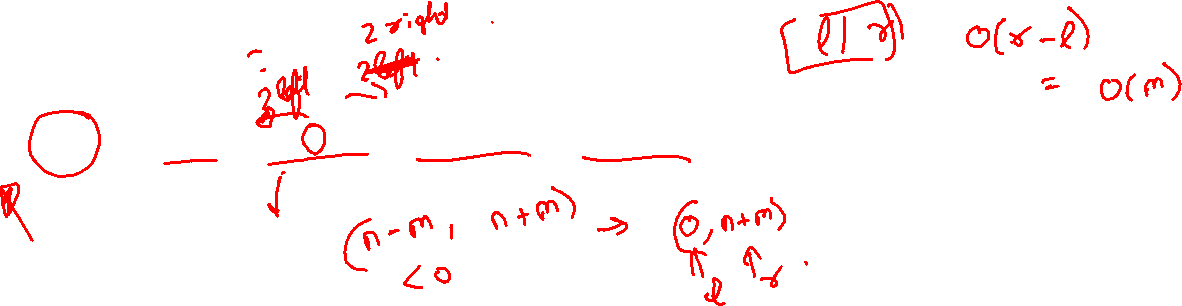 2 right
2 left
2 left
[l | r] O(r - l)
= O(m)
0
(n-m, n+m) → (0, n+m)
< 0
l r